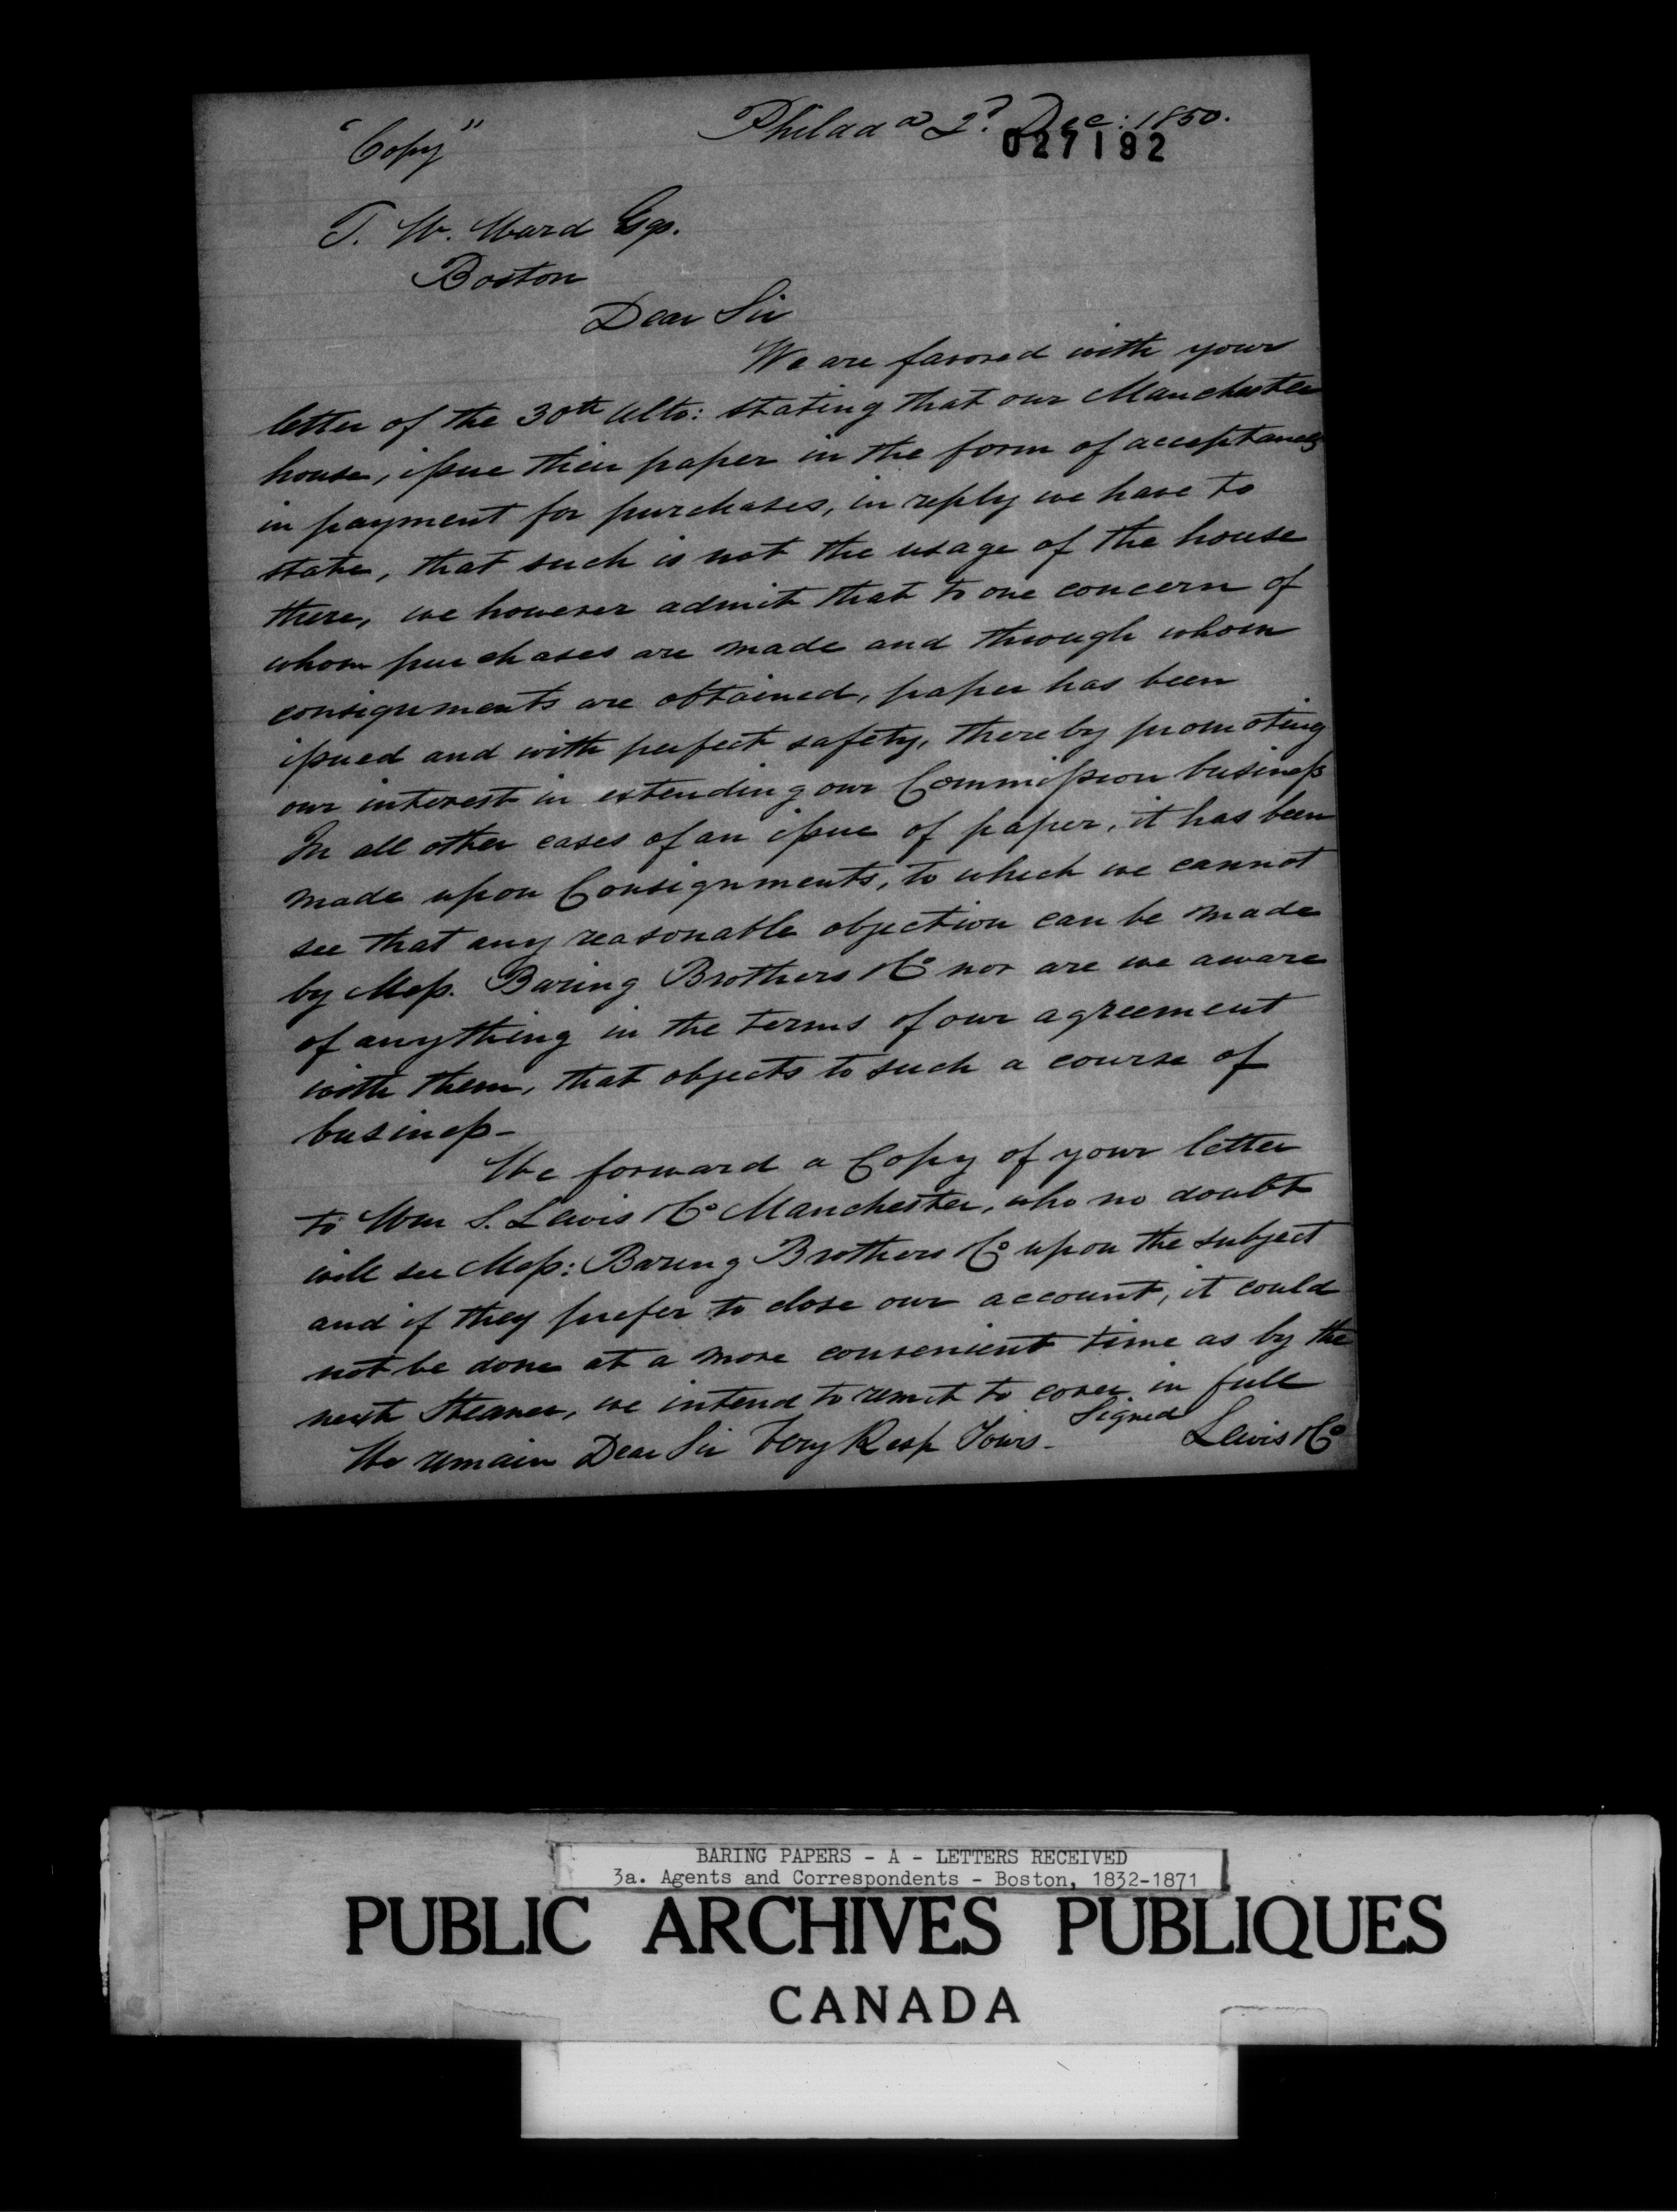 "Copy"
Philada 2d. Dec: 1850.
027192
T. W. Ward Esqr.
Boston
Dear Sir
We are favored with your
letter of the 30th Ulto: stating that our Manchester
house, issue their paper in the form of acceptances
in payment for purchases, in reply we have to
state, that such is not the usage of the house
there, we however admit that to one concern of
whom purchases are made and through whom
consignments are obtained, paper has been
issued and with perfect safety, thereby promoting
our interest in extending our Commission business
In all other cases of an issue of paper, it has been
made upon Consignments, to which we cannot
see that any reasonable objection can be made
by Mess. Baring Brothers & Co nor are we aware
of anything in the terms of our agreement
with them, that objects to such a course of
business -
We forward a Copy of your letter
to Wm S. Lewis & Co Manchester, who no doubt
will see Mess: Baring Brothers & Co upon the subject
and if they prefer to close our account, it could
not be done at a more convenient time as by the
next Steamer, we intend to remit to cover in full
We remain Dear Sir Very Resp Yours -
Signed
Lewis & Co
BARING PAPERS - A - LETTERS RECEIVED
3a. Agents and Correspondents - Boston, 1832-1871
PUBLIC ARCHIVES PUBLIQUES
CANADA